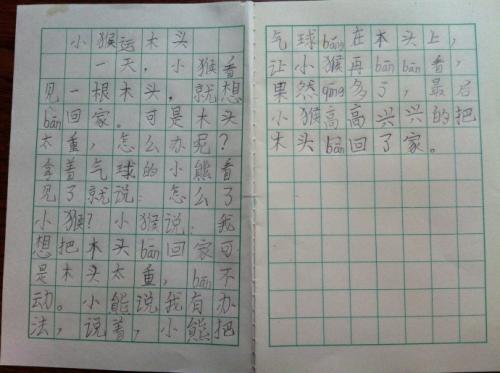 小猴运木头
一天,小猴看
见一根木头,就想
bān回家。可是木头
太重,怎么办呢?
拿着气球的小熊看
见了就说:怎么了
小猴?小猴说:我
想把木头bān回家可
是木头太重,bān不
动。小能说我有办
法,说着,小熊把
气球bāng在木头上,
让小猴再bān bān看,
果然qīng多了,最后
小猴高高兴兴的把
木头bān回了家。